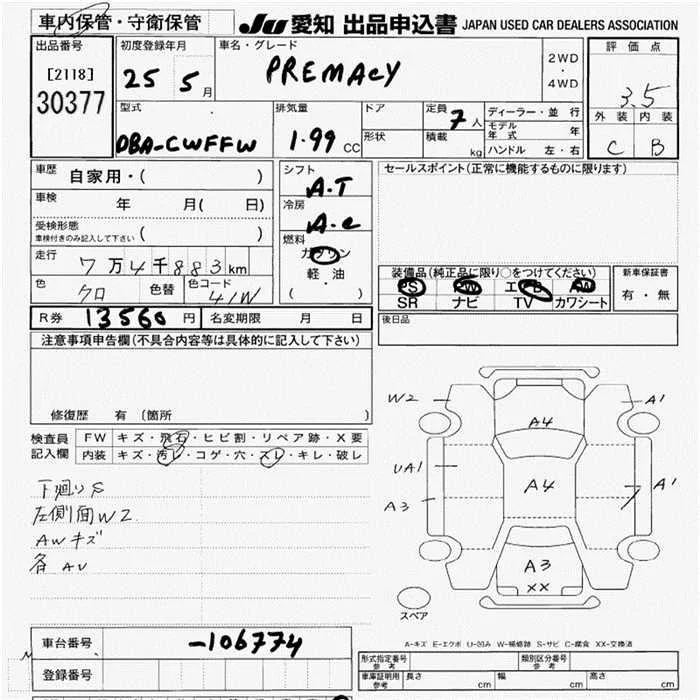 車内保管・守衛保管 JU 愛知 出品申込書 JAPAN USED CAR DEALERS ASSOCIATION
出品番号 [2118] 30377
初度登録年月 25 5 月
車名・グレード PREMACY
2WD ・ 4WD
評価点 3.5
外装 内装
C B
型式 DBA-CWFFW
排気量 1.99 CC
ドア
形状
定員 7 人
積載 kg
ディーラー・並行
モデル年式 年
ハンドル 左・右
車歴 自家用・( )
車検 年 月( 日)
受検形態 車検付きのみ記入して下さい ( )
走行 7万4千883km
色 クロ 色替 色コード 41W
シフト A.T
冷房 A.C
燃料 ガソリン
軽・油
( ・ )
セールスポイント(正常に機能するものに限ります)
装備品(純正品に限り○をつけてください)
PS PW エアB AW
SR ナビ TV カワシート
新車保証書
有・無
R券 13560 円 名変期限 月 日
後日品
注意事項申告欄(不具合内容等は具体的に記入して下さい)
修復歴 有(箇所 )
検査員記入欄
FW キズ・飛石・ヒビ割・リペア跡・X要
内装 キズ・汚レ・コゲ・穴・スレ・キレ・破レ
下廻りS
左側面W2
AWキズ
各AU
W2 A4 A1
UA1
A3 A4 A1
A3
XX
スペア
A-キズ E-エクボ U-凹み W-補修跡 S-サビ C-腐食 XX-交換済
車台番号 -106774
登録番号
形式指定番号 参考 類別区分番号 参考
車庫証明用 参考 長さ cm 幅 cm 高さ cm